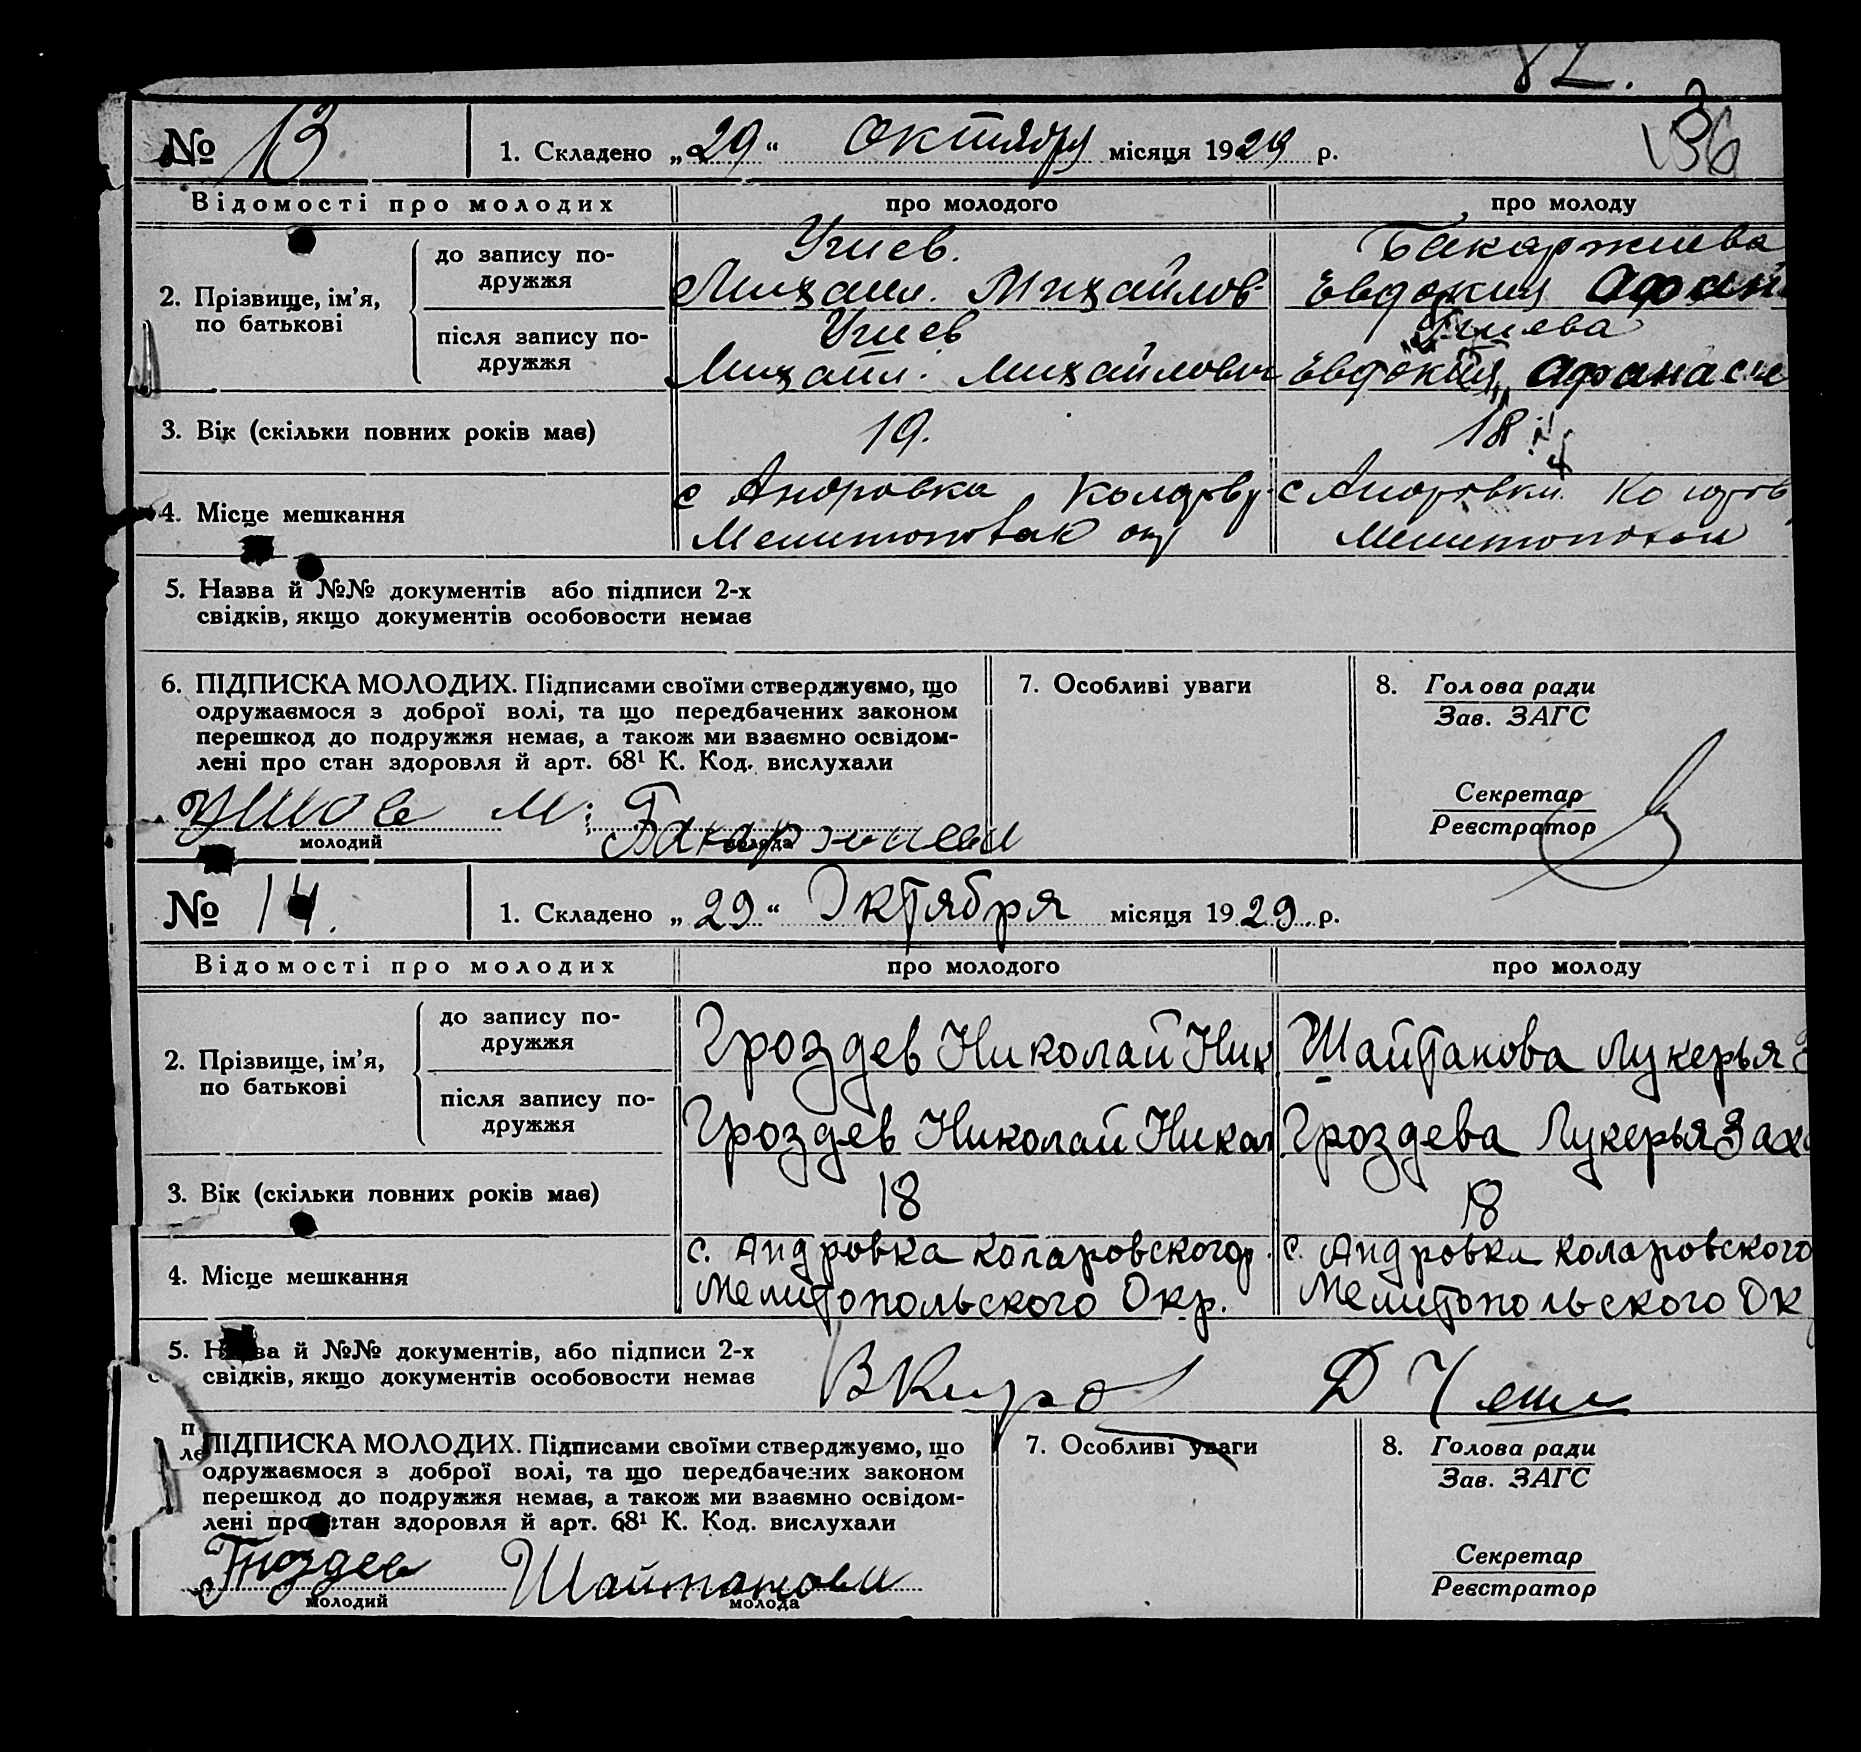 82.
36
№ 13
1. Складено „29“ октября місяця 1929 р.
Відомості про молодих
про молодого
про молоду
2. Прізвище, ім’я, по батькові
до запису подружжя
Михаил. Михайлов
Бакаржиева
Евдокия Афан
після запису подружжя
Михаил. Михайлович
Евдокия Афанасие
3. Вік (скільки повних років має)
19.
18
4. Місце мешкання
с Андровка
с Андровки.
5. Назва й №№ документів або підписи 2-х
свідків, якщо документів особовости немає
6. ПІДПИСКА МОЛОДИХ. Підписами своїми стверджуємо, що
одружаємося з доброї волі, та що передбачених законом
перешкод до подружжя немає, а також ми взаємно освідом-
лені про стан здоровля й арт. 68¹ К. Код. вислухали
М.
Бакаржиева
молодий
молода
7. Особливі уваги
8. Голова ради
Зав. ЗАГС
Секретар
Реєстратор
№ 14.
1. Складено „29“ Октября місяця 1929 р.
Відомості про молодих
про молодого
про молоду
2. Прізвище, ім’я, по батькові
до запису подружжя
Гроздев Николай Ник
Шайтанова Лукерья З
після запису подружжя
Гроздев Николай Никол
Гроздева Лукерья Заха
3. Вік (скільки повних років має)
18
18
4. Місце мешкання
с. Андровка Коларовского р.
Мелитопольского Окр.
с. Андровка Коларовского
Мелитопольского Ок
5. Назва й №№ документів, або підписи 2-х
свідків, якщо документів особовости немає
ПІДПИСКА МОЛОДИХ. Підписами своїми стверджуємо, що
одружаємося з доброї волі, та що передбачених законом
перешкод до подружжя немає, а також ми взаємно освідом-
лені про стан здоровля й арт. 68¹ К. Код. вислухали
Гроздев
Шайтанова
молодий
молода
7. Особливі уваги
8. Голова ради
Зав. ЗАГС
Секретар
Реєстратор